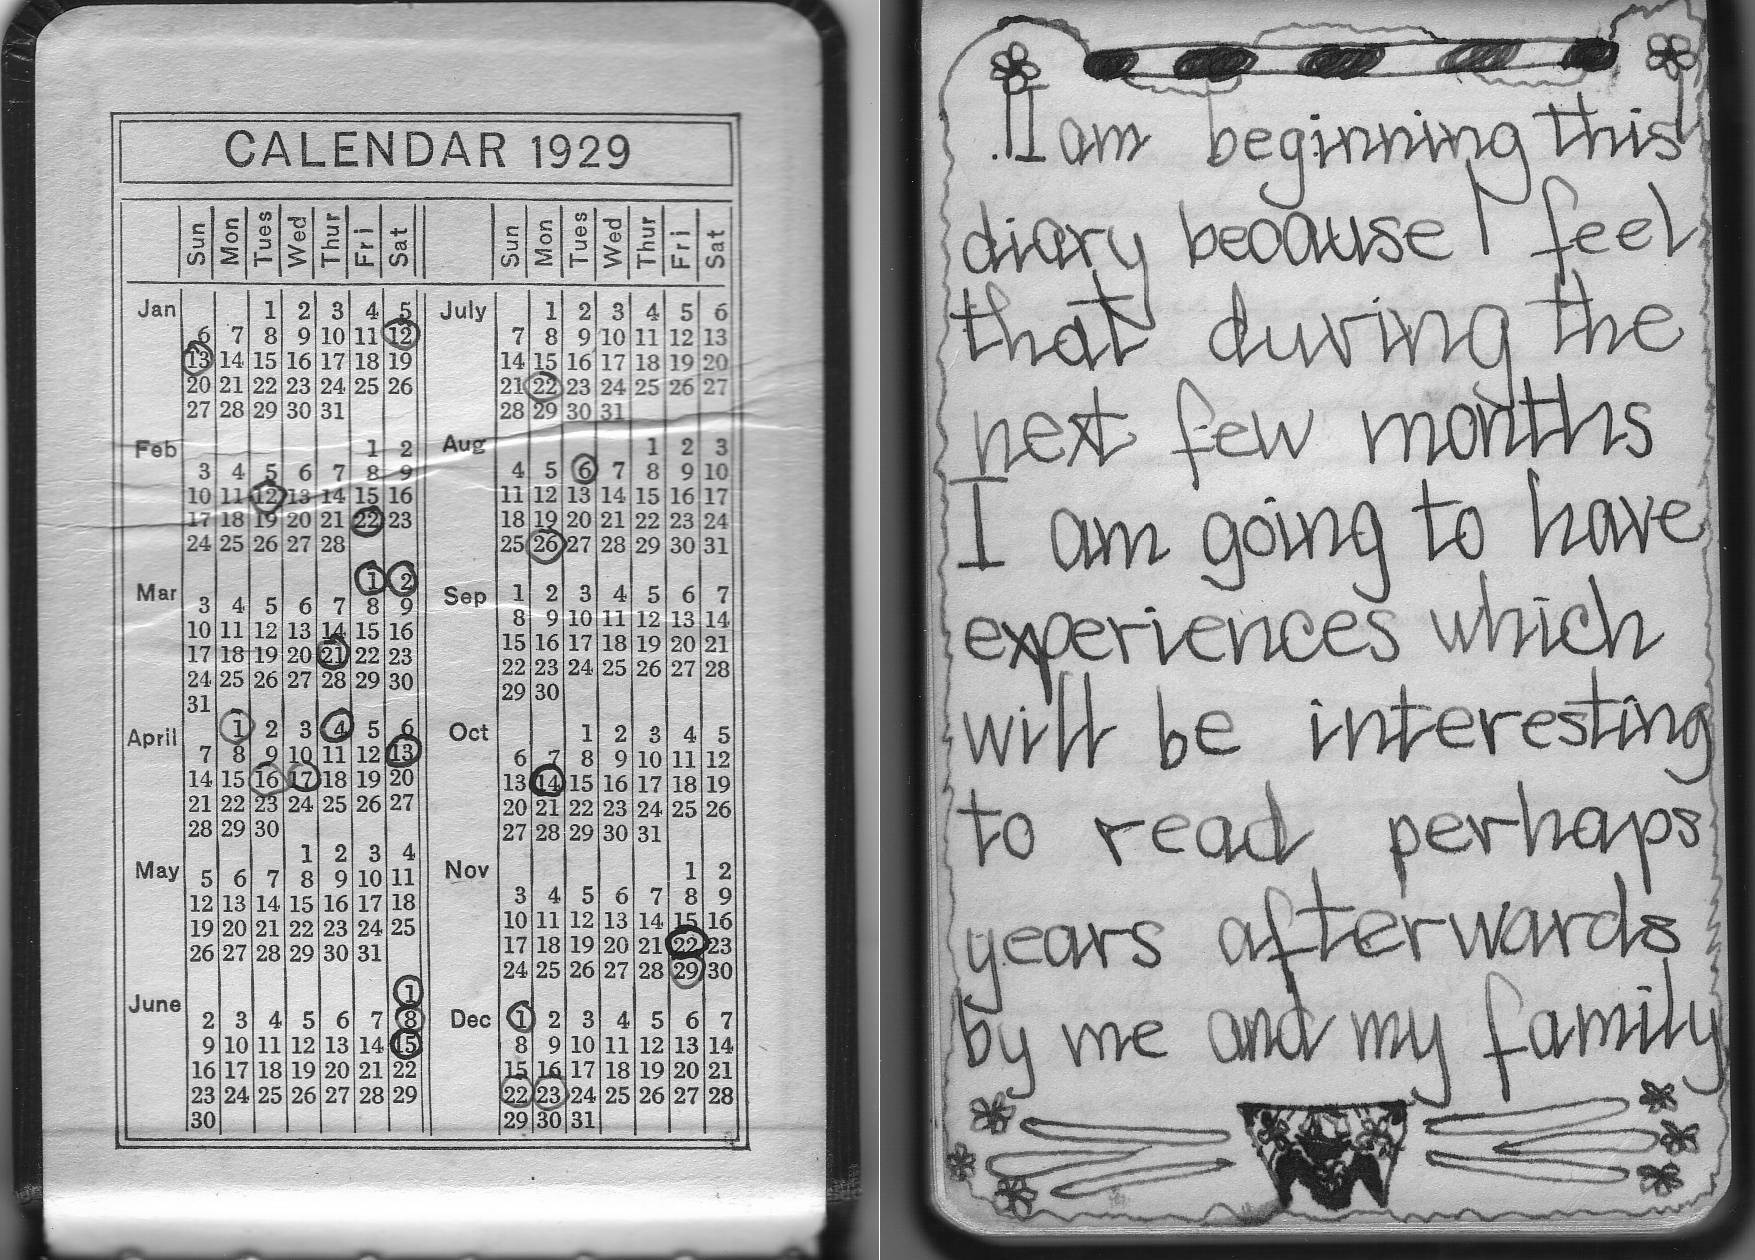 CALENDAR 1929
Sun Mon Tues Wed Thur Fri Sat
Jan
1 2 3 4 5
6 7 8 9 10 11 12
13 14 15 16 17 18 19
20 21 22 23 24 25 26
27 28 29 30 31
Feb
1 2
3 4 5 6 7 8 9
10 11 12 13 14 15 16
17 18 19 20 21 22 23
24 25 26 27 28
Mar
1 2
3 4 5 6 7 8 9
10 11 12 13 14 15 16
17 18 19 20 21 22 23
24 25 26 27 28 29 30
31
April
1 2 3 4 5 6
7 8 9 10 11 12 13
14 15 16 17 18 19 20
21 22 23 24 25 26 27
28 29 30
May
1 2 3 4
5 6 7 8 9 10 11
12 13 14 15 16 17 18
19 20 21 22 23 24 25
26 27 28 29 30 31
June
1
2 3 4 5 6 7 8
9 10 11 12 13 14 15
16 17 18 19 20 21 22
23 24 25 26 27 28 29
30
Sun Mon Tues Wed Thur Fri Sat
July
1 2 3 4 5 6
7 8 9 10 11 12 13
14 15 16 17 18 19 20
21 22 23 24 25 26 27
28 29 30 31
Aug
1 2 3
4 5 6 7 8 9 10
11 12 13 14 15 16 17
18 19 20 21 22 23 24
25 26 27 28 29 30 31
Sep
1 2 3 4 5 6 7
8 9 10 11 12 13 14
15 16 17 18 19 20 21
22 23 24 25 26 27 28
29 30
Oct
1 2 3 4 5
6 7 8 9 10 11 12
13 14 15 16 17 18 19
20 21 22 23 24 25 26
27 28 29 30 31
Nov
1 2
3 4 5 6 7 8 9
10 11 12 13 14 15 16
17 18 19 20 21 22 23
24 25 26 27 28 29 30
Dec
1 2 3 4 5 6 7
8 9 10 11 12 13 14
15 16 17 18 19 20 21
22 23 24 25 26 27 28
29 30 31
I am beginning this
diary because I feel
that during the
next few months
I am going to have
experiences which
will be interesting
to read perhaps
years afterwards
by me and my family